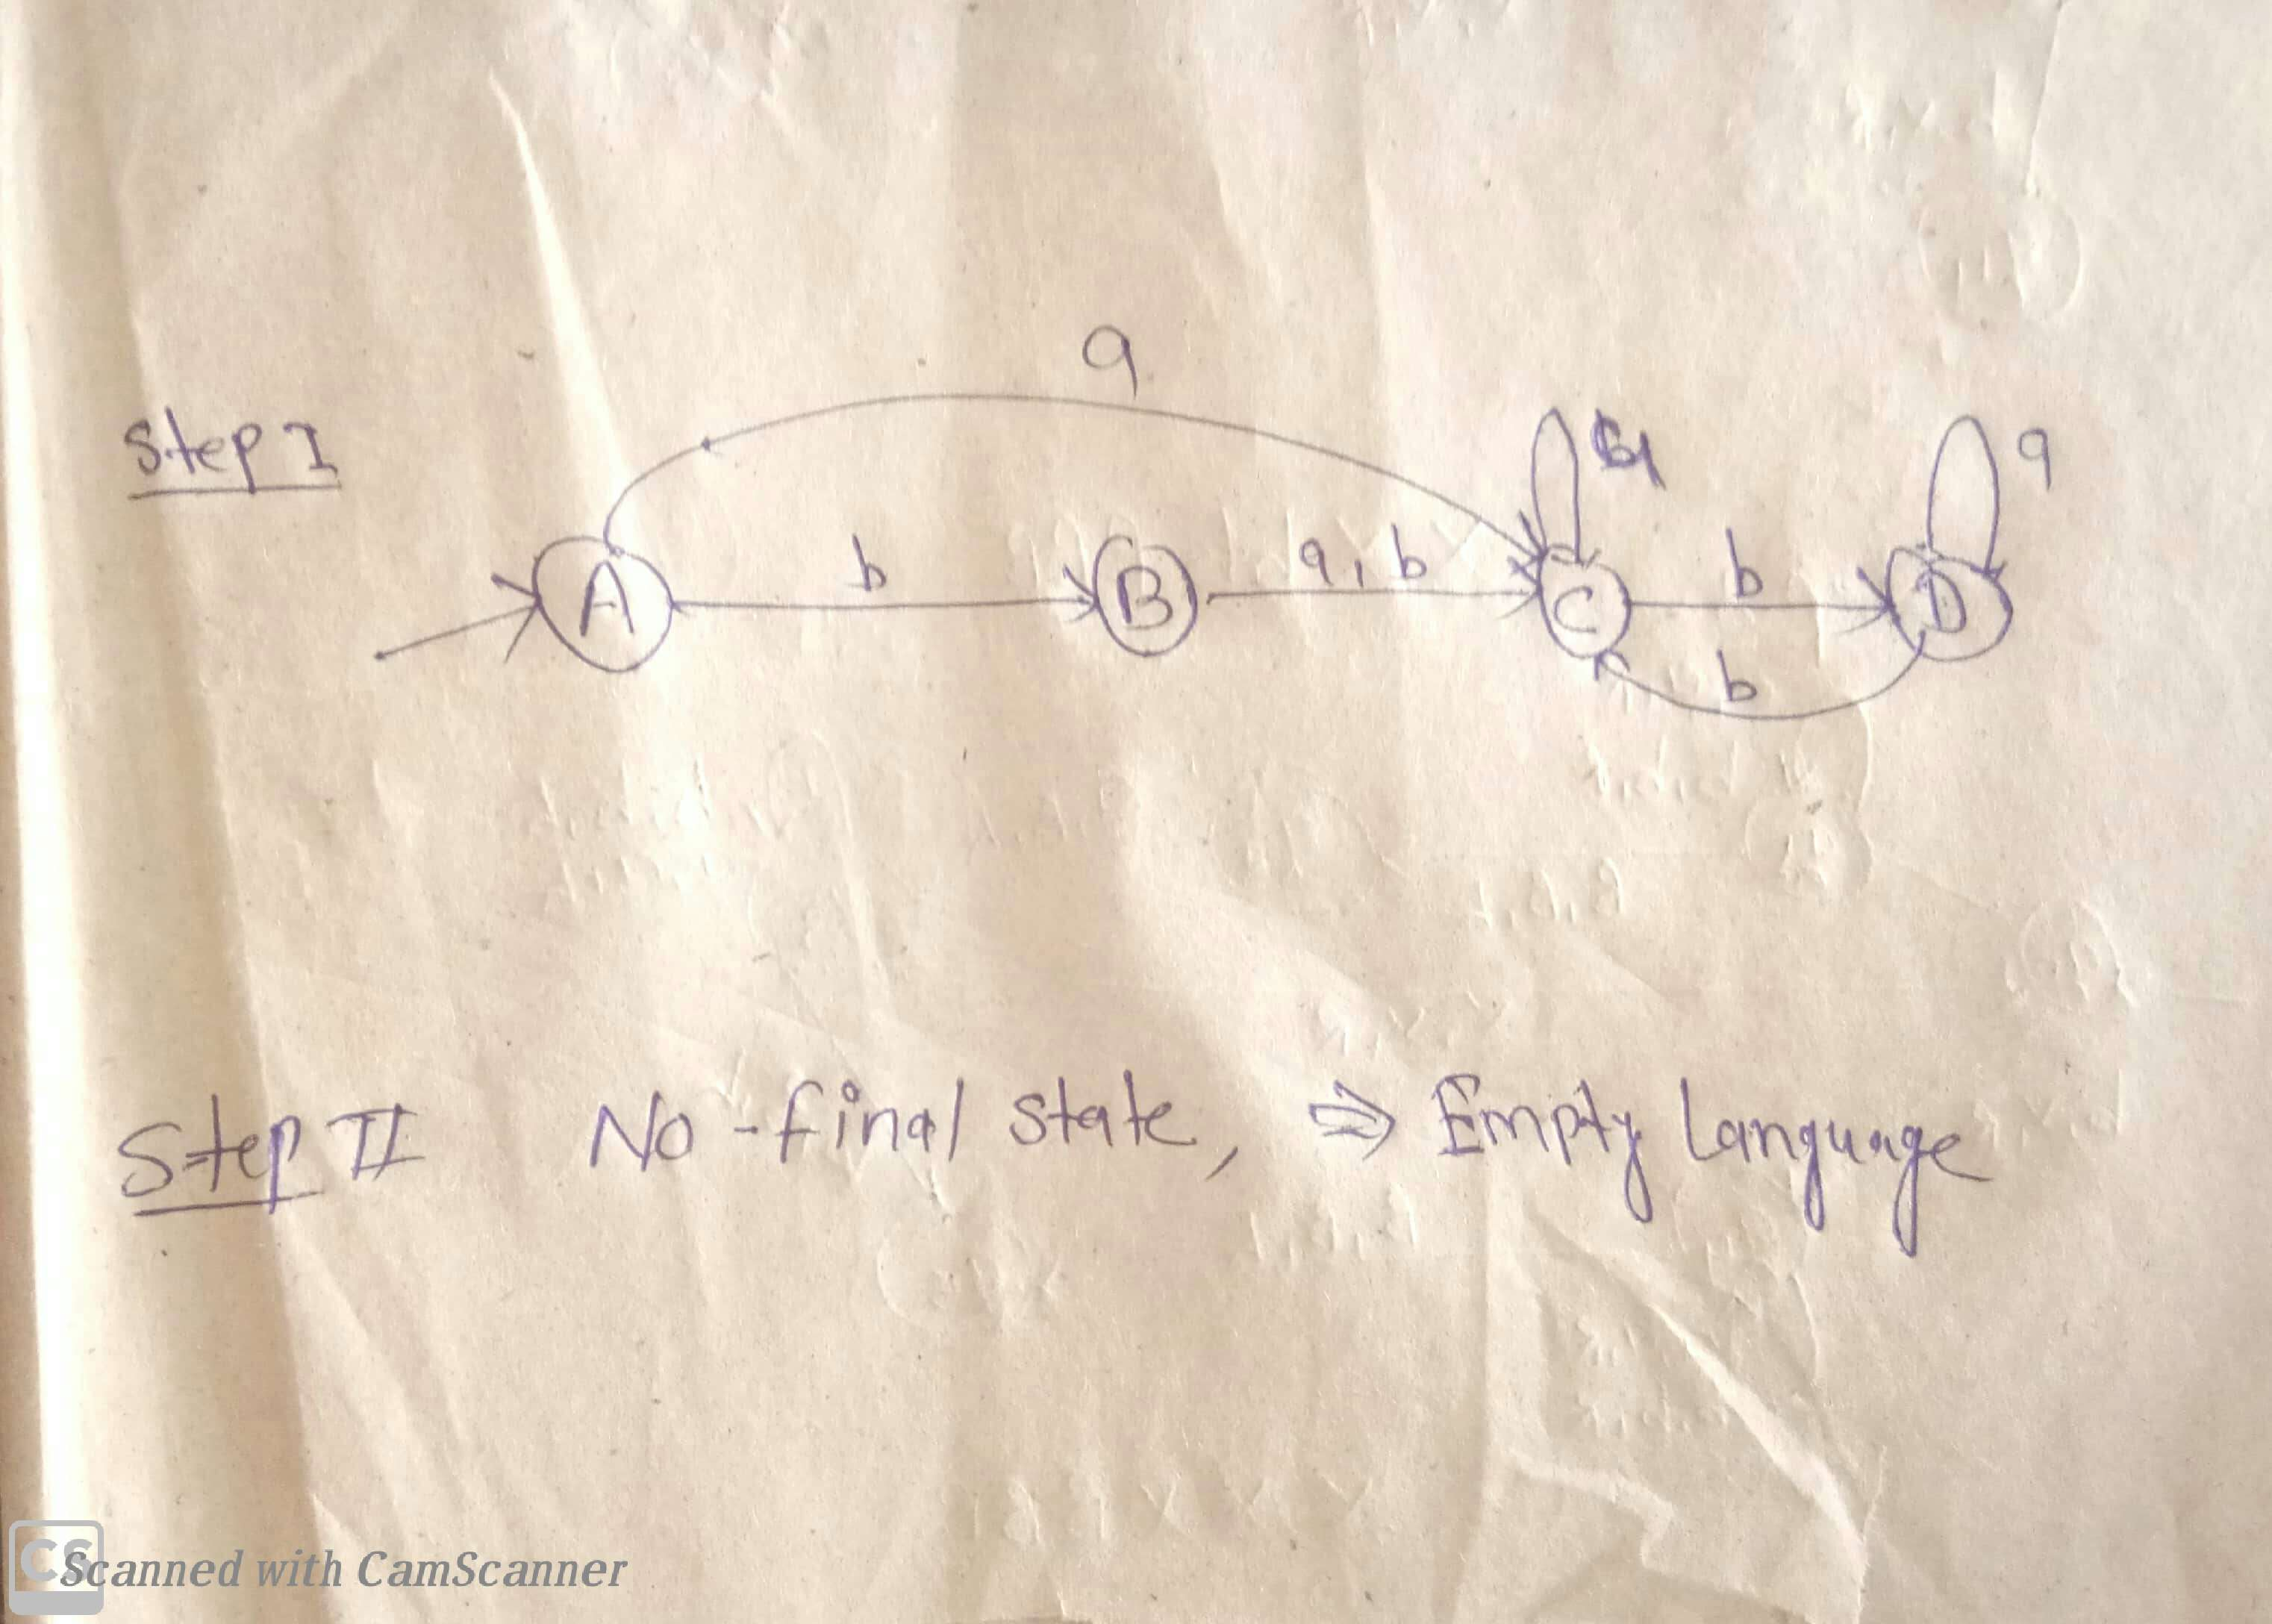 a
Step I
a
a
A
b
B
a, b
C
b
D
b
Step II No-final state, ⇒ Empty language
CS Scanned with CamScanner